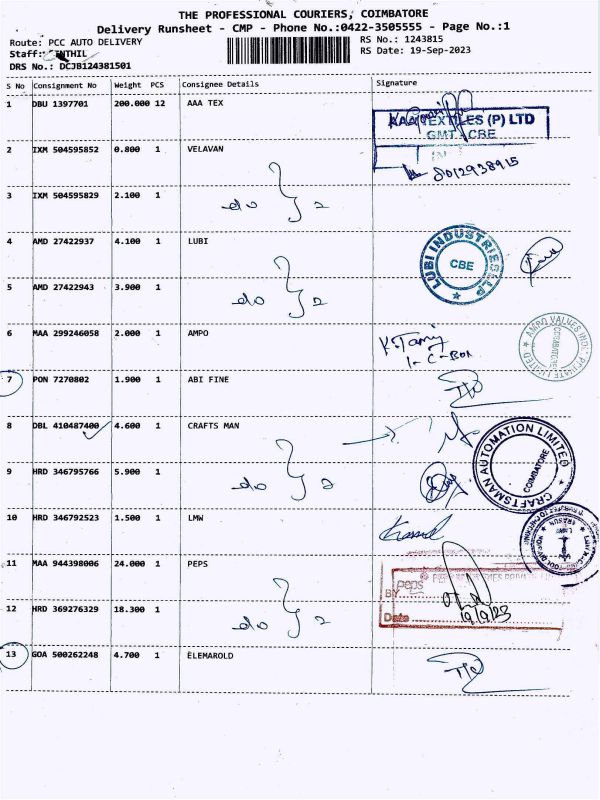 THE PROFESSIONAL COURIERS, COIMBATORE
Delivery Runsheet - CMP - Phone No.:0422-3505555 - Page No.:1
Route: PCC AUTO DELIVERY
RS No.: 1243815
Staff:
RS Date: 19-Sep-2023
DRS No.: DCJB124381501
S No Consignment No Weight PCS Consignee Details Signature
1 DBU 1397701 200.000 12 AAA TEX
TEXTILES (P) LTD
GMT. CBE
2 IXM 504595852 0.800 1 VELAVAN
8012938915
3 IXM 504595829 2.100 1 do } 2
4 AMD 27422937 4.100 1 LUBI
LUBI INDUSTRIES LLP CBE
5 AMD 27422943 3.900 1 do } 2
6 MAA 299246058 2.000 1 AMPO
AMPO VALVES INDIA PRIVATE LIMITED COIMBATORE
7 PON 7270802 1.900 1 ABI FINE
8 DBL 410487400 4.600 1 CRAFTS MAN
CRAFTSMAN AUTOMATION LIMITED COIMBATORE
9 HRD 346795766 5.900 1 do } 2
10 HRD 346792523 1.500 1 LMW
11 MAA 944398006 24.000 1 PEPS
peps
BY
Date 19/9/23
12 HRD 369276329 18.300 1 do } 2
13 GOA 500262248 4.700 1 ELEMAROLD